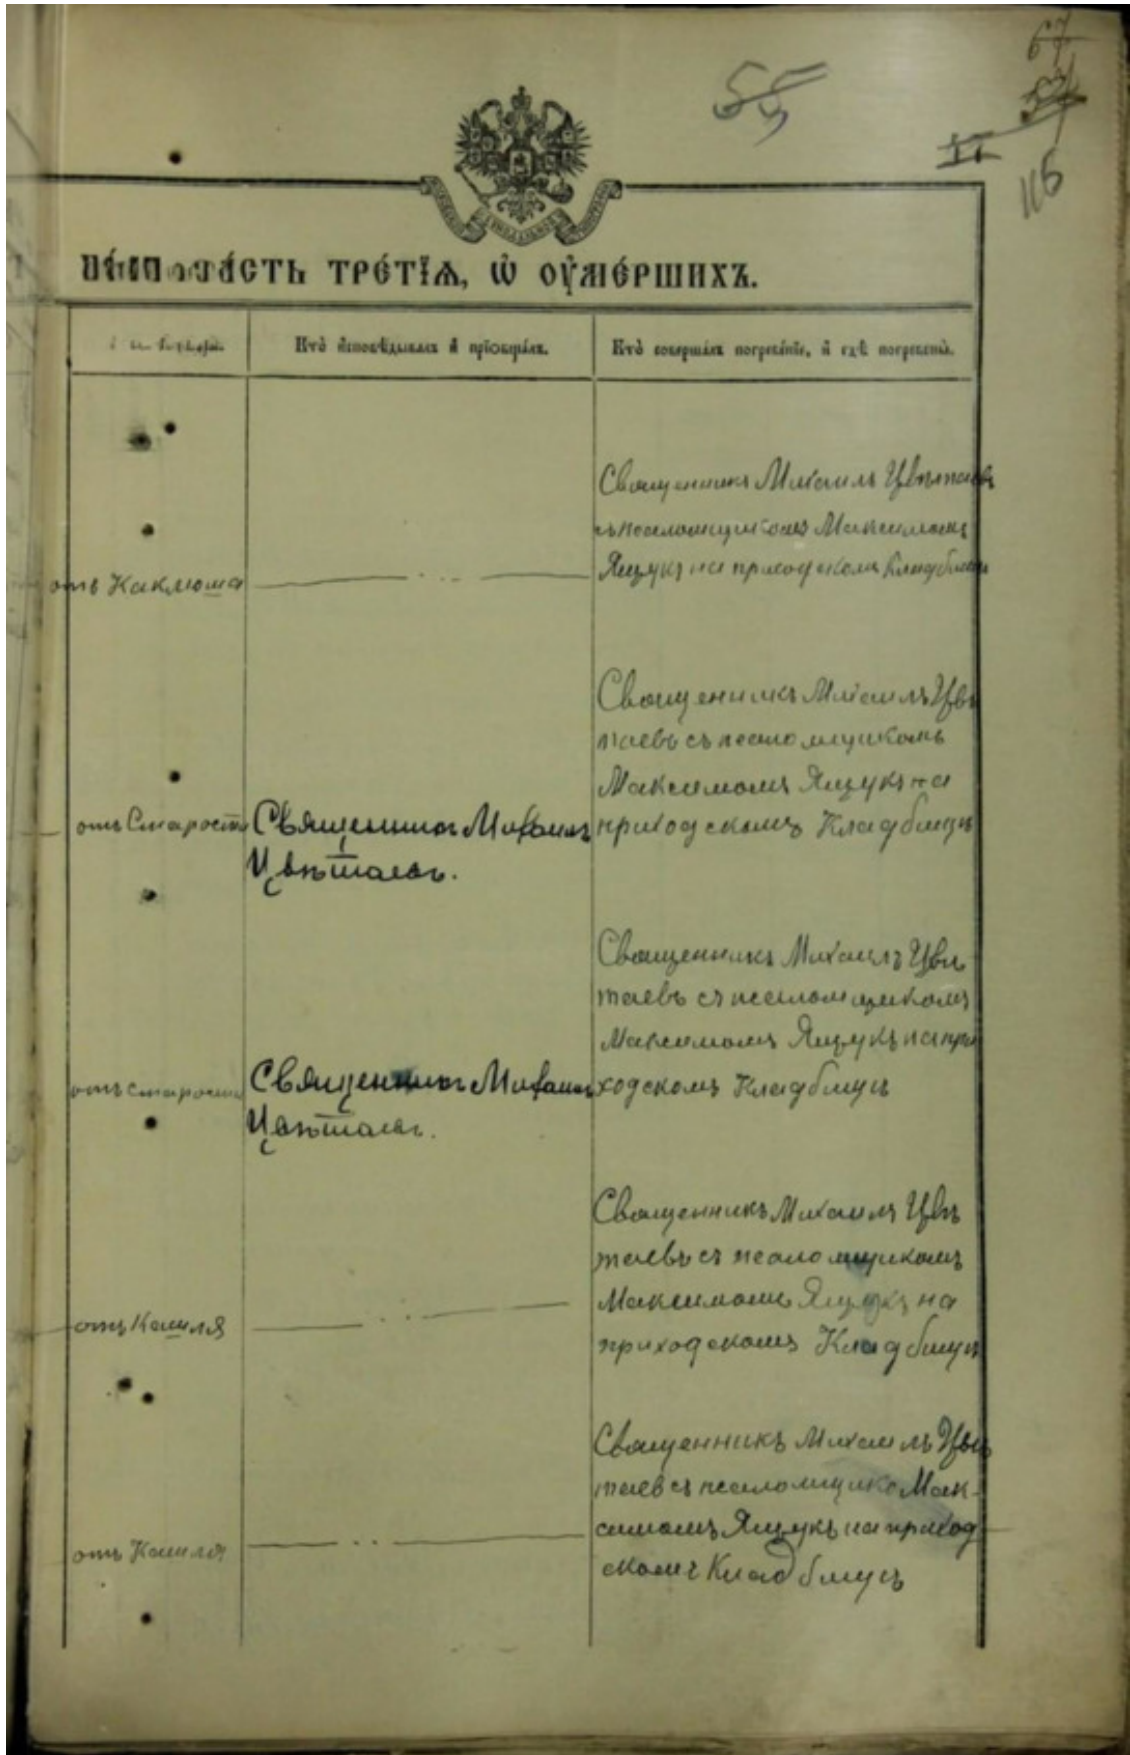 67
55
57
II
116
ЧА́СТЬ ТРЕ́ТЇѦ, Ѡ҆ ОУ҆МЕ́РШИХЪ.
Кто̀ и҆сповѣ́дывалъ и҆ прїобща́лъ.
Кто̀ соверша́лъ погребе́нїе, и҆ гдѣ̀ погребены̀.
Священникъ Михаилъ Цвѣтаевъ
съ псаломщикомъ Максимомъ
Ящукъ на приходскомъ Кладбищѣ
отъ Каклюша
Священникъ Михаилъ Цвѣ
таевъ съ псаломщикомъ
Максимомъ Ящукъ на
приходскомъ Кладбищѣ
отъ Старости
Священникъ Михаилъ
Цвѣтаевъ.
Священникъ Михаилъ Цвѣ
таевъ съ псаломщикомъ
Максимомъ Ящукъ на при
ходскомъ Кладбищѣ
отъ старости
Священникъ Михаилъ
Цвѣтаевъ.
Священникъ Михаилъ Цвѣ
таевъ съ псаломщикомъ
Максимомъ Ящукъ на
приходскомъ Кладбищѣ
отъ Кашля
Священникъ Михаилъ Цвѣ
таев съ псаломщико Мак-
симомъ Ящукъ на приход
скомъ Кладбищѣ
отъ Кашля